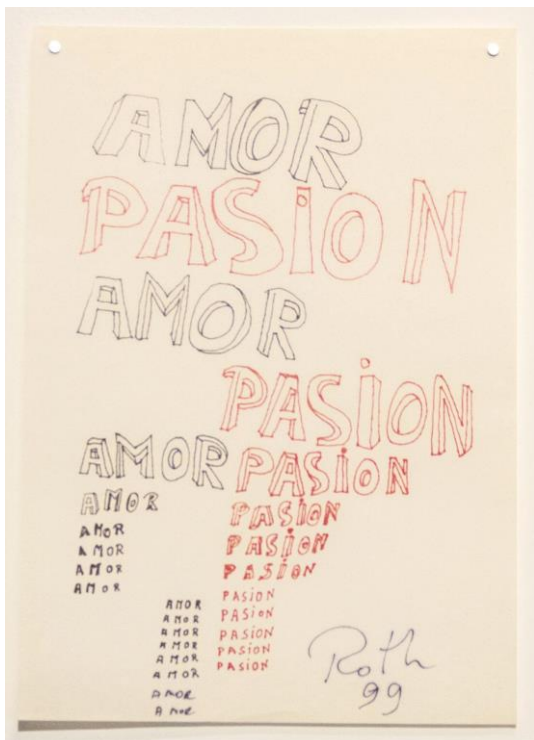 AMOR
PASiON
AMOR
PASiON
AMOR PASiON
AMOR PASiON
AMOR PASiON
AMOR
AMOR PASiON
AMOR PASiON
AMOR PASiON
AMOR
AMOR PASiON
AMOR PASiON
AMOR PASiON
AMOR
AMOR
AMOR
Roth
99